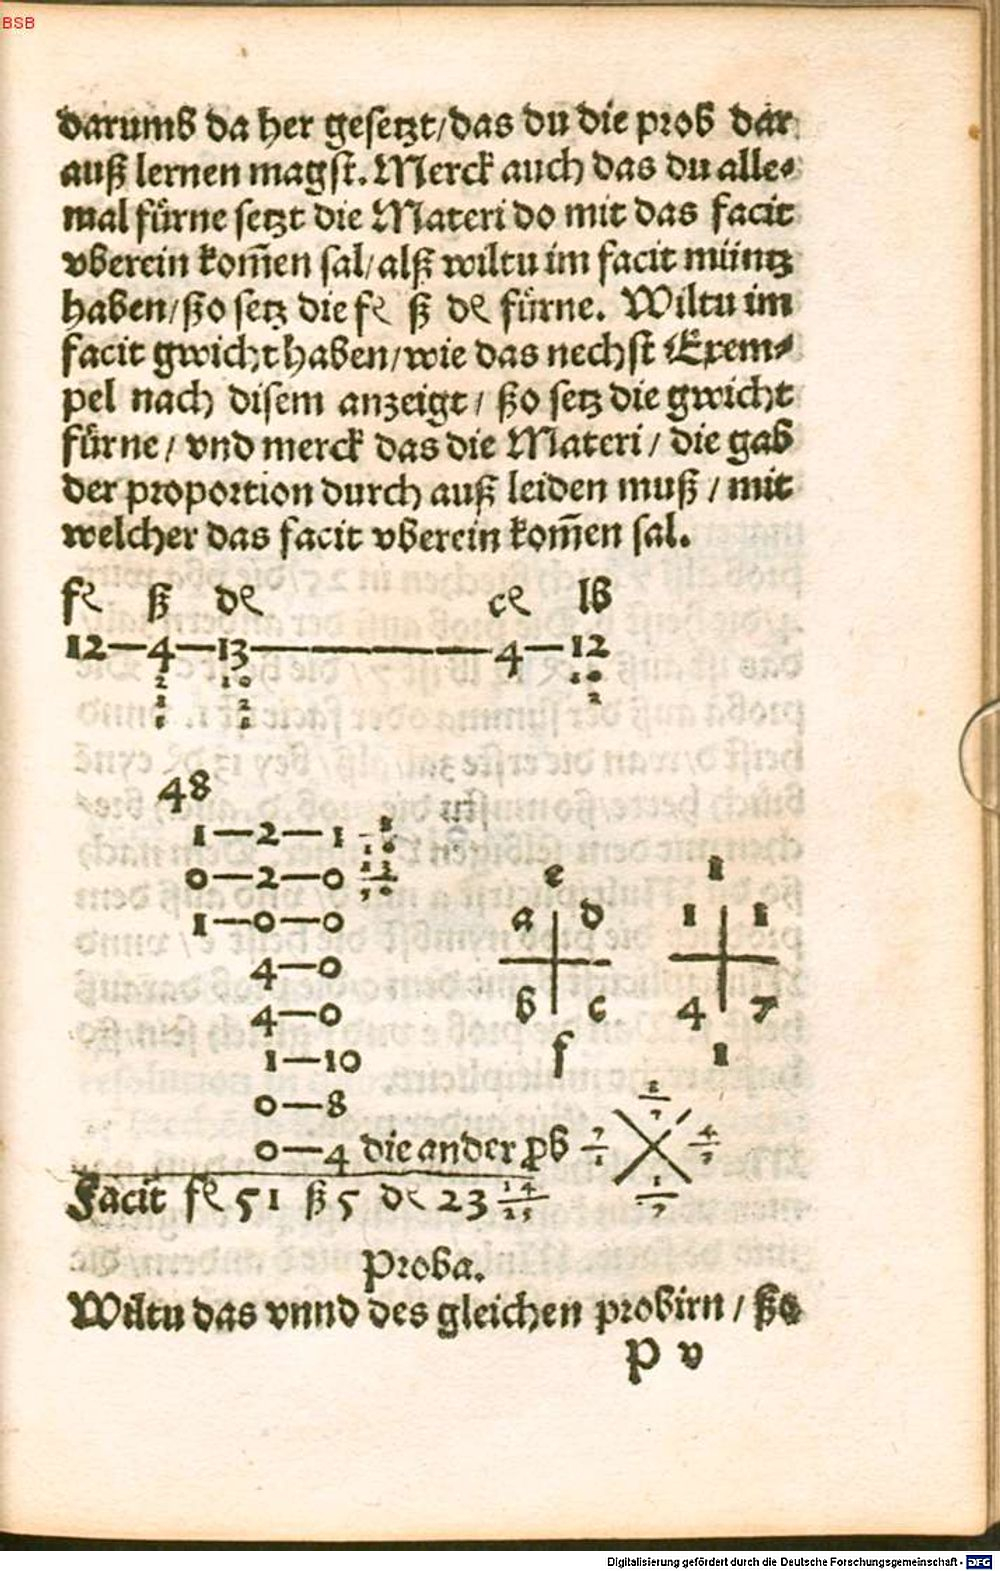 BSB
darumb da her gesetzt/das du die prob dar
auß lernen magst. Merck auch das du alle⸗
mal fürne setzt die Materi do mit das facit
vberein kom̄en sal/alß wiltu im facit müntz
haben/ßo setz die fl ß dl fürne. Wiltu im
facit gwicht haben/wie das nechst Exem⸗
pel nach disem anzeigt / ßo setz die gwicht
fürne / vnd merck das die Materi / die gab
der proportion durch auß leiden muß / mit
welcher das facit vberein kom̄en sal.
fl ß dl cl lb
12—4—13————————4—12
2 10 10
2 2 2
8 8
48
1—2—1 1/10
0—2—0 13/50
1—0—0
4—0
4—0
1—10
0—8
0—4 die ander prob 7/1 2/7 4/7 1/7
e
a d
b c
f
1
1 1
4 7
1
Facit fl 51 ß 5 dl 23 14/25
Proba.
Wiltu das vnnd des gleichen probirn / ßo
P v
Digitalisierung gefördert durch die Deutsche Forschungsgemeinschaft - DFG